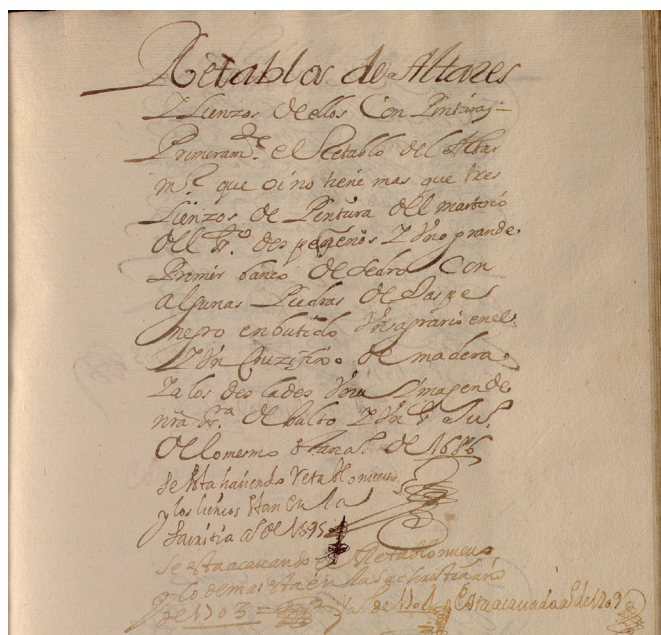 Retablos de Altares
Y Lienzos de ellos Con Pinturas=
Primeram.te el Retablo del Altar
m.r que oi no tiene mas que tres
Lienzos de Pintura del martirio
del S.to dos pequeños Y Vno grande
Primer banco de Cedro Con
algunas Piedras de Jaspe
negro enbutido Vn sagrario en el
Y Vn Cruzifixo de madera.
Ya los dos lados Vna Ymagen de
nra S.ra de bulto Y Vn S.r
de lo mesmo de 1686
se esta haciendo retablo nuevo
y los liensos stan en la
Sacristia aº de 1695
se esta acavando el Retablo nuevo
y lo demas sta en la sachristia año
de 1703 = y aº de 170 Esta acavado aº de 1709